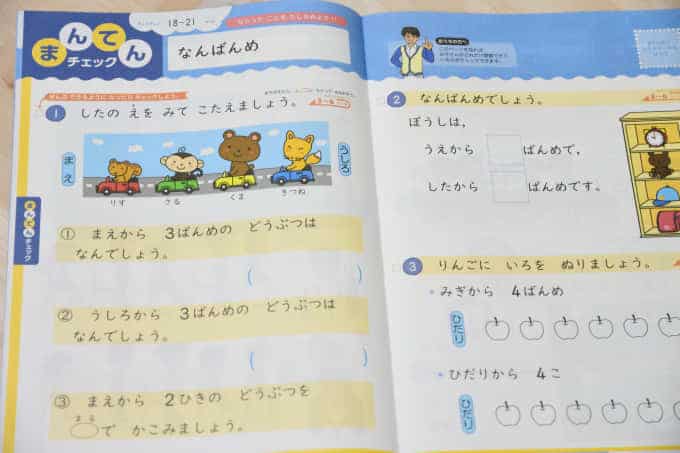 まんてん
チェック
18-21
なんばんめ
1 したの えを みて こたえましょう。
まえ
うしろ
りす
さる
くま
きつね
① まえから 3ばんめの どうぶつは
なんでしょう。
( )
② うしろから 3ばんめの どうぶつは
なんでしょう。
( )
③ まえから 2ひきの どうぶつを
まる
で かこみましょう。
まんてんチェック
2 なんばんめでしょう。
ぼうしは、
うえから ばんめで、
したから ばんめです。
3 りんごに いろを ぬりましょう。
・みぎから 4ばんめ
ひだり
・ひだりから 4こ
ひだり